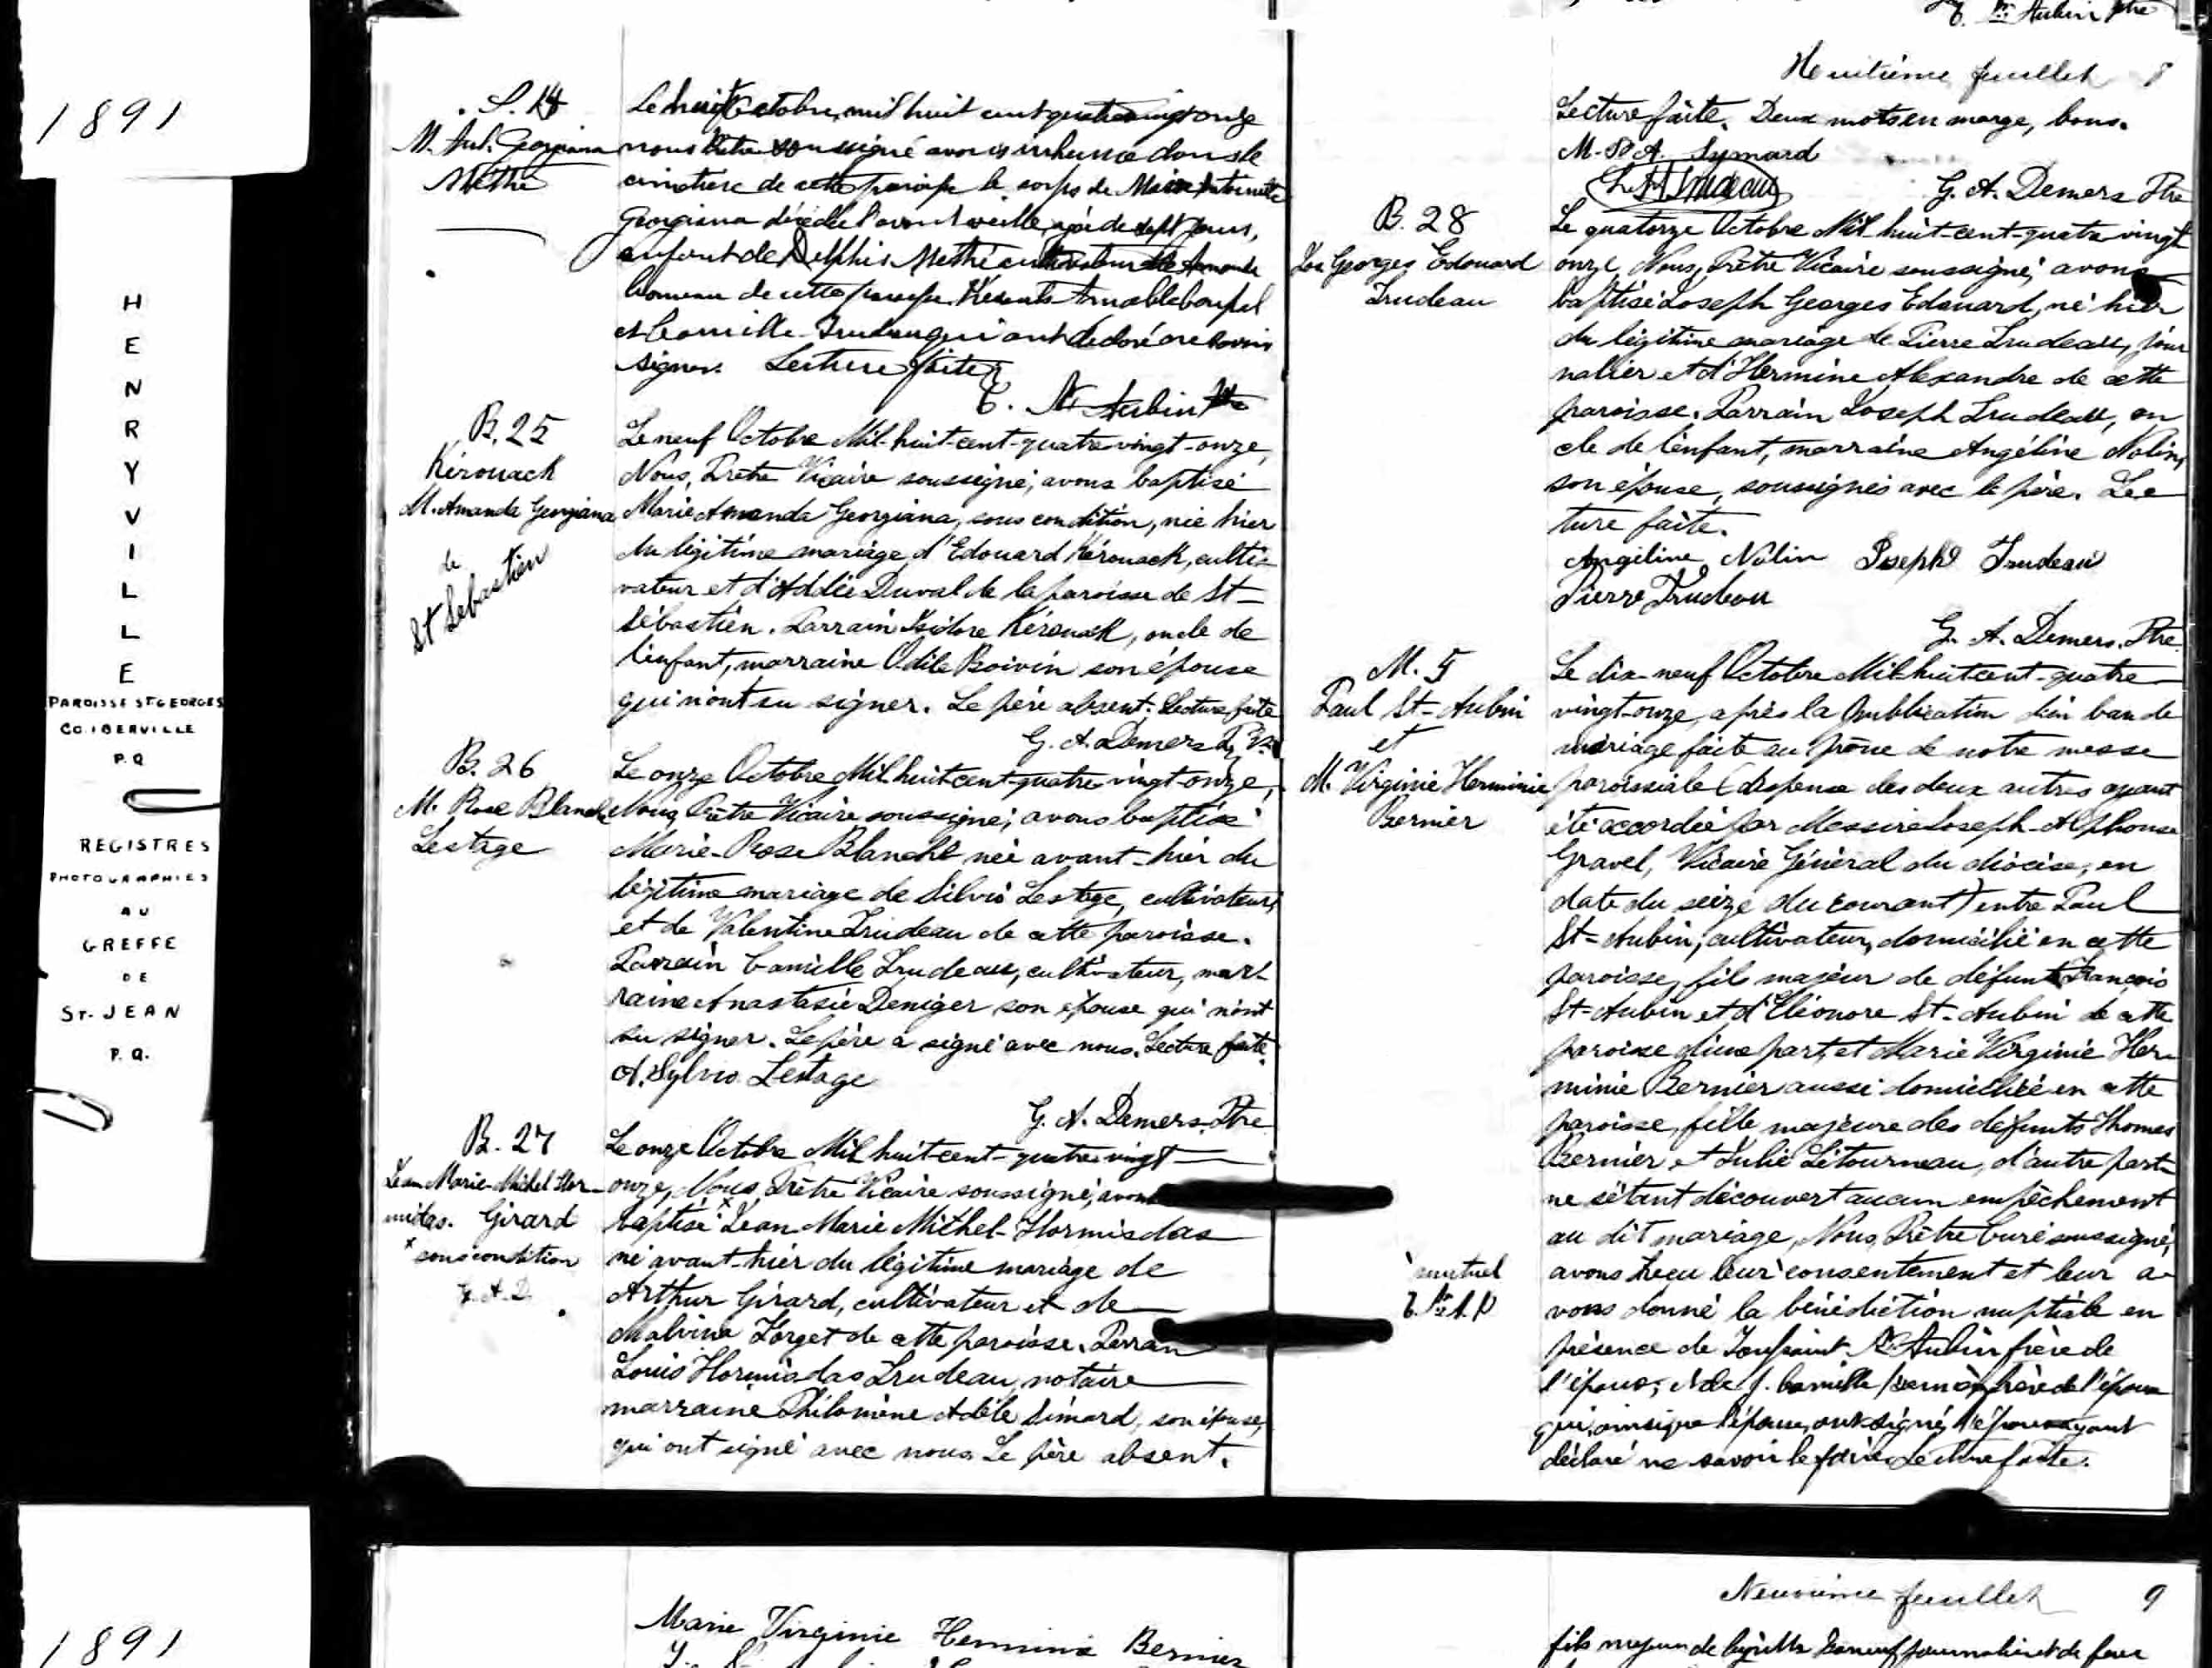 1891
HENRYVILLE
PAROISSE ST GEORGES
CO. IBERVILLE
P.Q
REGISTRES
PHOTOGRAPHIES
AU
GREFFE
DE
ST. JEAN
P.Q.
1891
S. 18
M. Ant. Georgiana
Methé
Le huit Octobre, mil huit cent quatre vingt onze
nous Prêtre soussigné avons inhumé dans le
cimetière de cette paroisse le corps de Marie Antoinette
Georgiana décédée l'avant veille, agée de sept jours,
enfant de Delphis Methé cultivateur
de cette paroisse. Présents
et Camille Trudeau qui ont déclaré ne savoir
signer. Lecture faite
St Aubin Ptre
B. 25
Kérouack
M. Amanda Georgiana
de
St Sébastien
Le neuf Octobre Mil-huit-cent-quatre vingt-onze,
Nous, Prêtre Vicaire soussigné, avons baptisé
Marie Amanda Georgiana, sous condition, née hier
du légitime mariage d'Edouard Kérouack, culti-
vateur et d'Addée Duval de la paroisse de St-
Sébastien. Parrain Isidore Kérouack, oncle de
l'enfant, marraine Odile Boivin son épouse
qui n'ont su signer. Le père absent. Lecture faite
G. A. Demers
B. 26
M. Rose Blanche
Lestage
Le onze Octobre Mil huit-cent-quatre vingt-onze,
Nous, Prêtre Vicaire soussigné, avons baptisé
Marie-Rose Blanche née avant-hier du
légitime mariage de Silvio Lestage, cultivateur,
et de Valentine Trudeau de cette paroisse.
Parrain Camille Trudeau, cultivateur, mar-
raine Anastasie Deniger son épouse qui n'ont
su signer. Le père a signé avec nous. Lecture faite.
A. Sylvio Lestage
G. A. Demers. Ptre
B. 27
Jean Marie-Michel Hor-
midas. Girard
x sous condition
G. A. D.
Le onze Octobre Mil huit-cent-quatre vingt
onze, Nous, Prêtre Vicaire soussigné, avons
baptisé x Jean-Marie Michel-Hormisdas
né avant-hier du légitime mariage de
Arthur Girard, cultivateur et de
Malvina Forget de cette paroisse. Parrain
Louis Hormisdas Trudeau, notaire
marraine Philomène Adèle Simard, son épouse,
qui ont signé avec nous. Le père absent.
St Aubin Ptre
Huitième feuillet 8
Lecture faite. Deux mots en marge, bons.
M. P. A. Symard
L. H. Trudeau
G. A. Demers Ptre
B. 28
Jos Georges Edouard
Trudeau
Le quatorze Octobre Mil-huit-cent-quatre vingt
onze, Nous, Prêtre Vicaire soussigné, avons
baptisé Joseph Georges Edouard, né hier
du légitime mariage de Pierre Trudeau, jour
nalier et d'Hermine Alexandre de cette
paroisse. Parrain Joseph Trudeau, on
cle de l'enfant, marraine Angéline Nolin,
son épouse, soussignés avec le père. Lec
ture faite.
Angéline Nolin Joseph Trudeau
Pierre Trudeau
G. A. Demers. Ptre.
M. 5
Paul St-Aubin
et
M. Virginie Herminie
Bernier
Le dix-neuf Octobre Mil huit cent-quatre
vingt-onze, après la publication d'un ban de
mariage faite au prône de notre messe
paroissiale (dispense des deux autres ayant
été accordée par Messire Joseph-Alphonse
Gravel, Vicaire Général du diocèse, en
date du seize du courant) entre Paul
St-Aubin, cultivateur, domicilié en cette
paroisse, fils majeur de défunt François
St-Aubin et d'Eléonore St-Aubin de cette
paroisse d'une part, et Marie Virginie Her-
minie Bernier aussi domiciliée en cette
paroisse, fille majeure des défunts Thomas
Bernier et Julie Létourneau, d'autre part
ne s'étant découvert aucun empêchement
au dit mariage, Nous, Prêtre Curé soussigné,
avons reçu leur consentement et leur a-
vons donné la bénédiction nuptiale en
présence de Toussaint St Aubin frère de
l'époux, et de J. Camille Bernier frère de l'épouse
qui, ainsi que l'épouse, ont signé, l'époux ayant
déclaré ne savoir le faire. Lecture faite.
mutuel
Marie Virginie Herminie Bernier
Neuvième feuillet 9